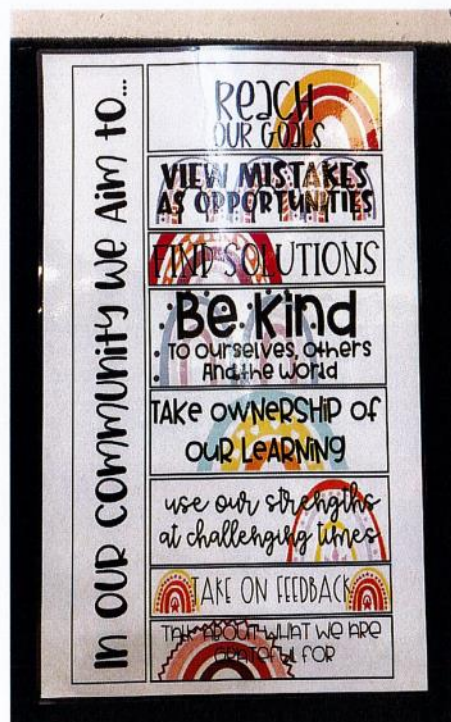 In OUR COMMUNITY WE AIM TO...
REACH
OUR GOALS
VIEW MISTAKES
AS OPPORTUNITIES
FIND SOLUTIONS
Be Kind
TO OURSELVES, OTHERS
And the WORLD
TAKE OWNERSHIP OF
OUR LEARNING
use our strengths
at challenging times
TAKE ON FEEDBACK
TALK ABOUT WHAT WE ARE
GRATEFUL FOR